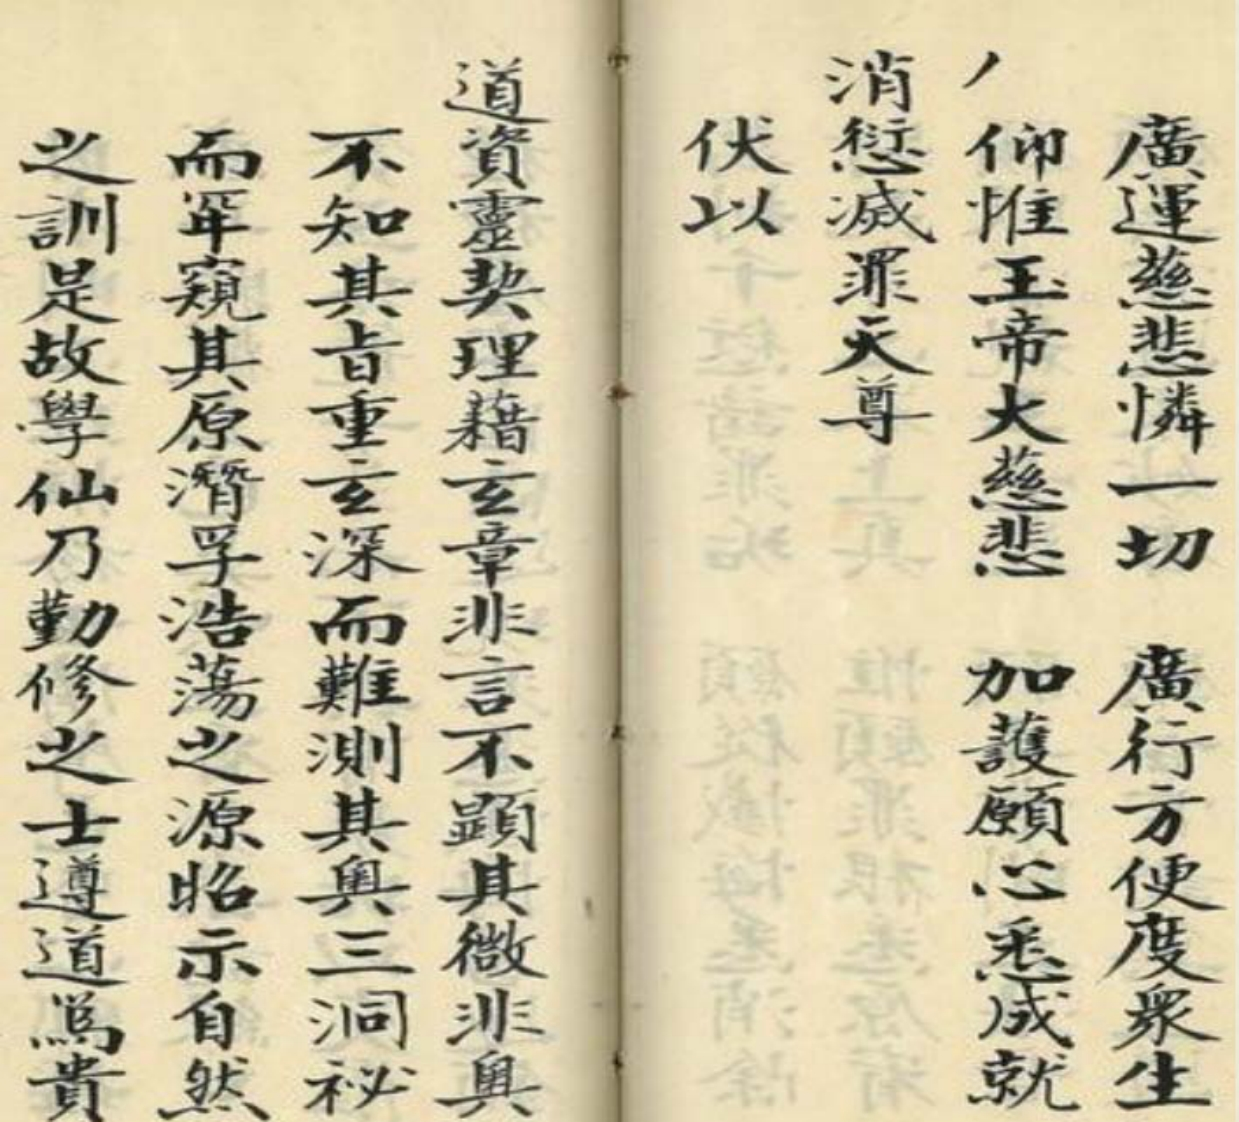 廣運慈悲憐一切　廣行方便度衆生
仰惟玉帝大慈悲　加護願心悉成就
消愆滅罪天尊
伏以
道資靈契理藉玄章非言不顯其微非奥
不知其旨重玄深而難測其奥三洞祕
而罕窺其原濳孚浩蕩之源昭示自然
之訓是故學仙乃勤修之士遵道爲貴